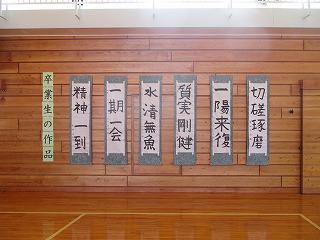 切磋琢磨
一陽来復
質実剛健
水清無魚
一期一会
精神一到
卒業生の作品